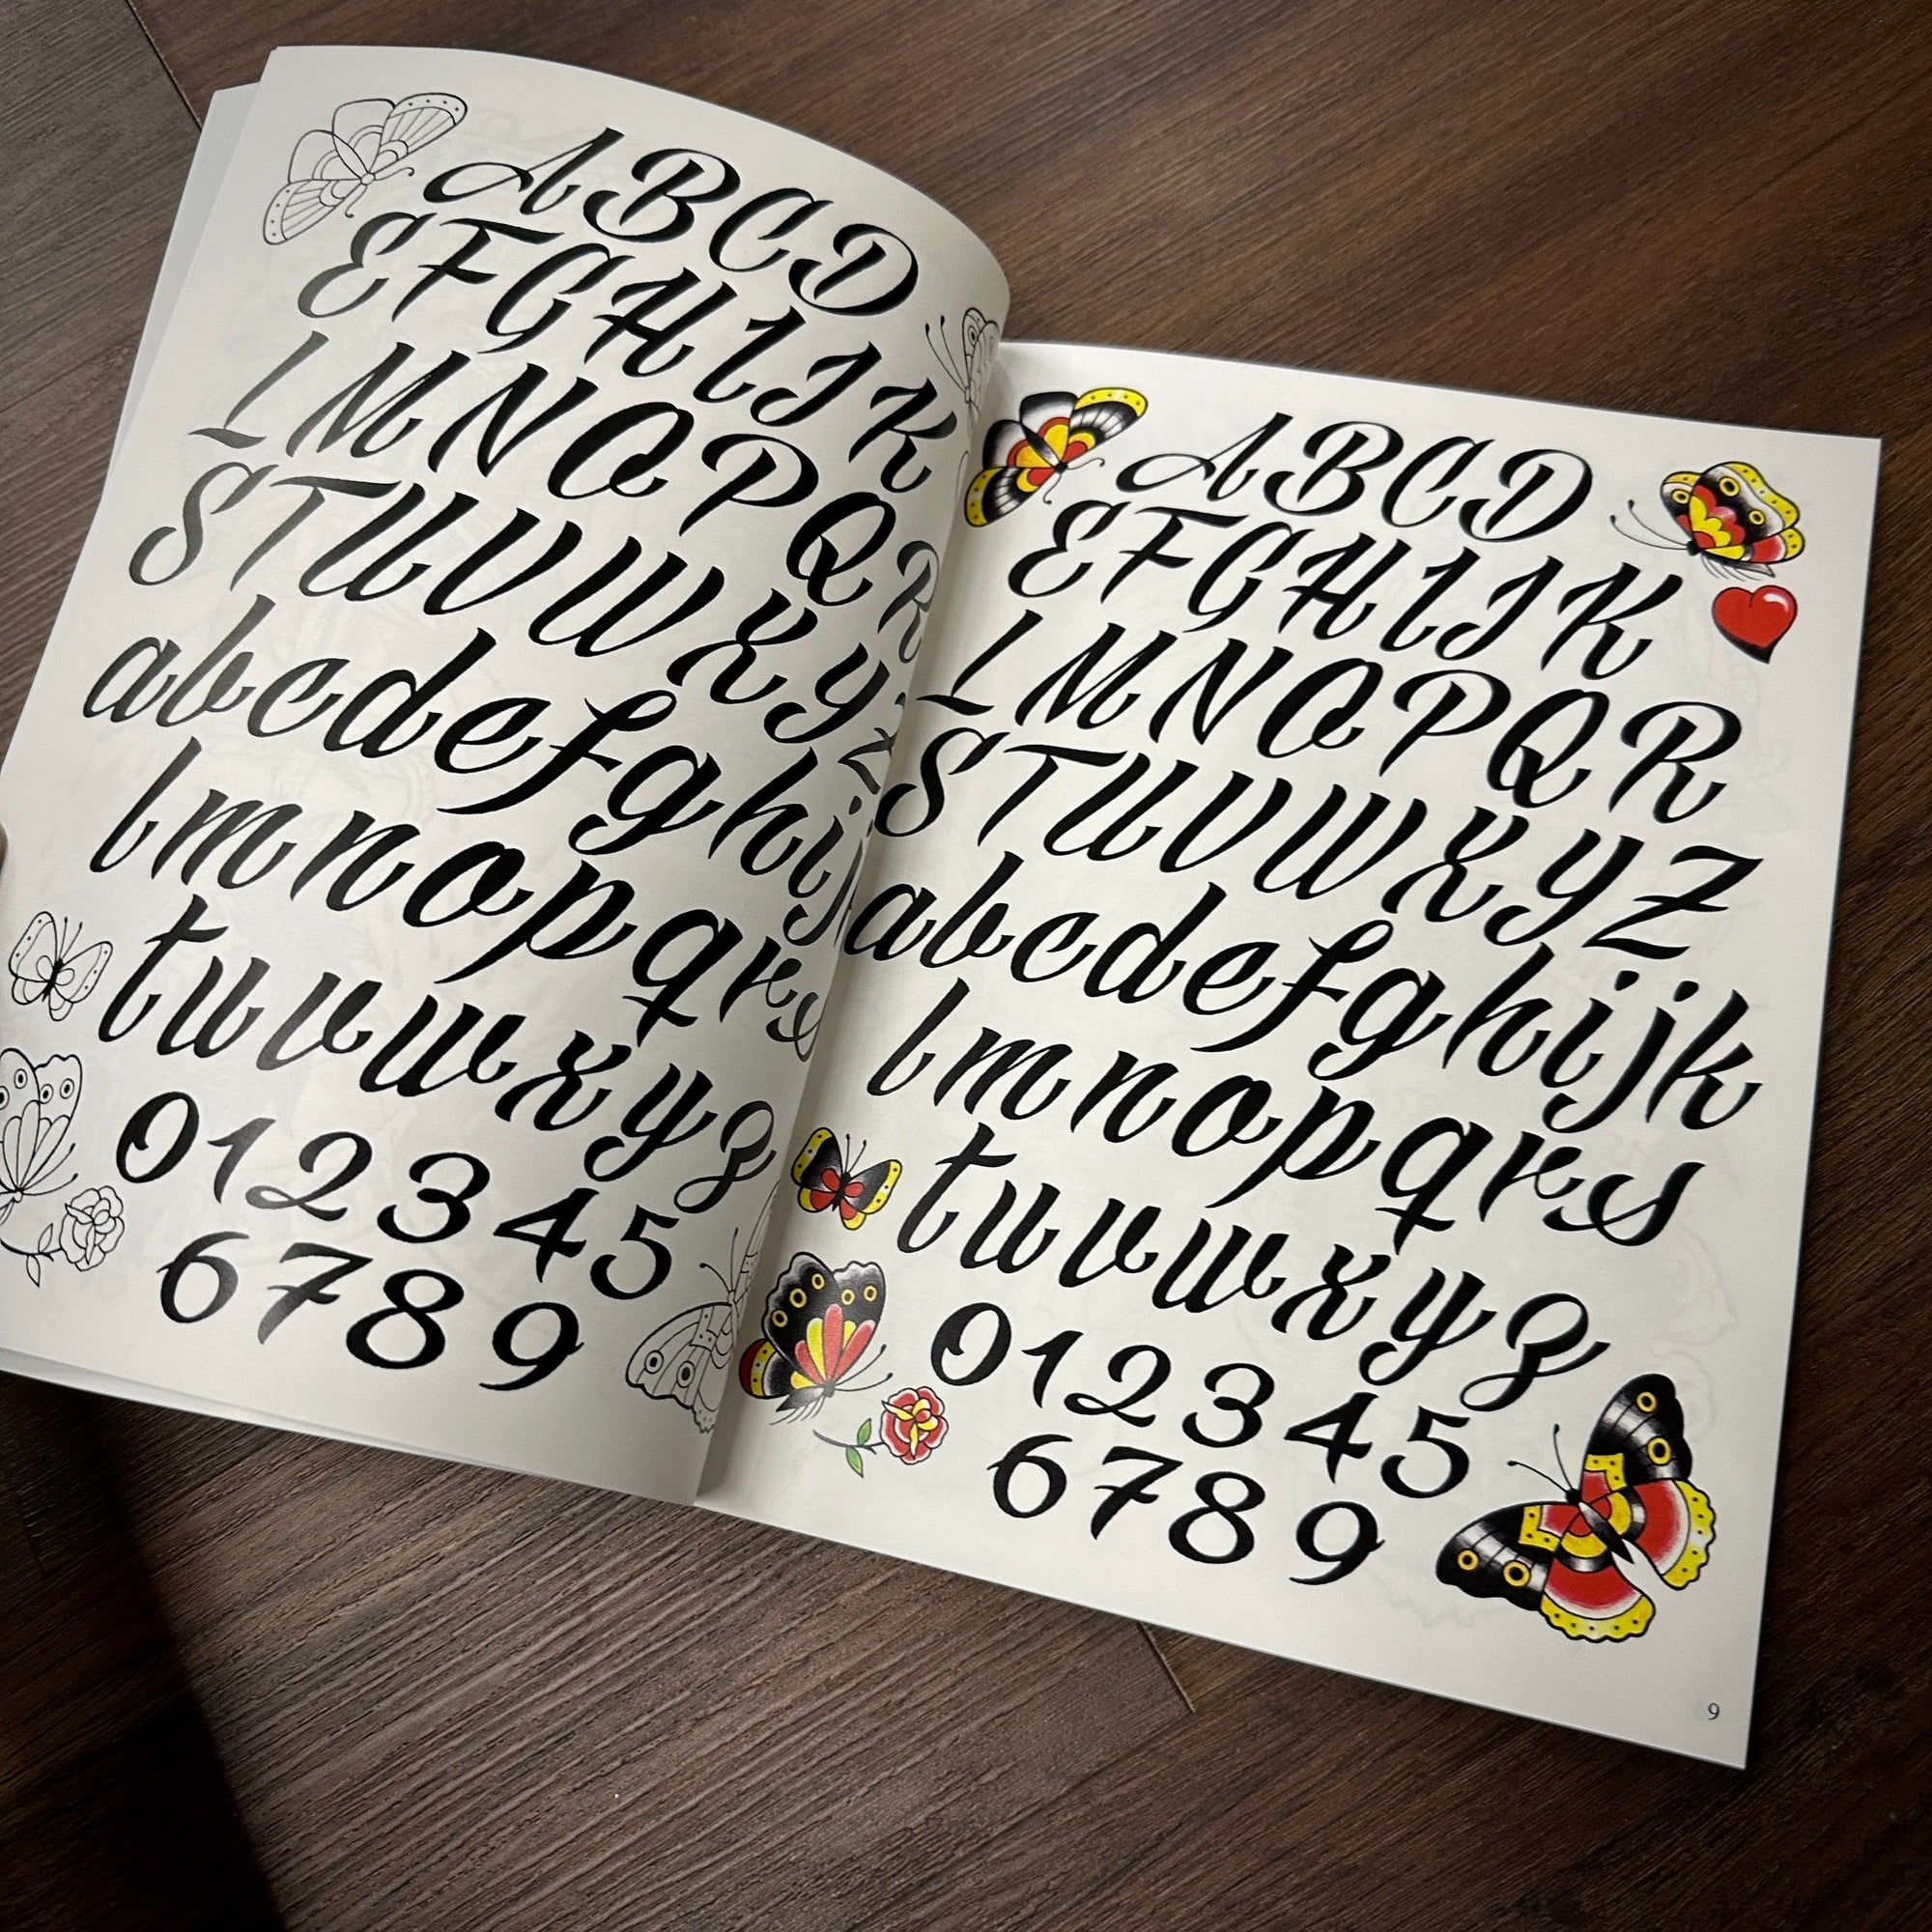 ABCD
EFGHIJK
LMNOPQR
STUVWXYZ
abcdefghij
lmnopqrs
tuvwxyz
012345
6789
ABCD
EFGHIJK
LMNOPQR
STUVWXYZ
abcdefghijk
lmnopqrs
tuvwxyz
012345
6789
9